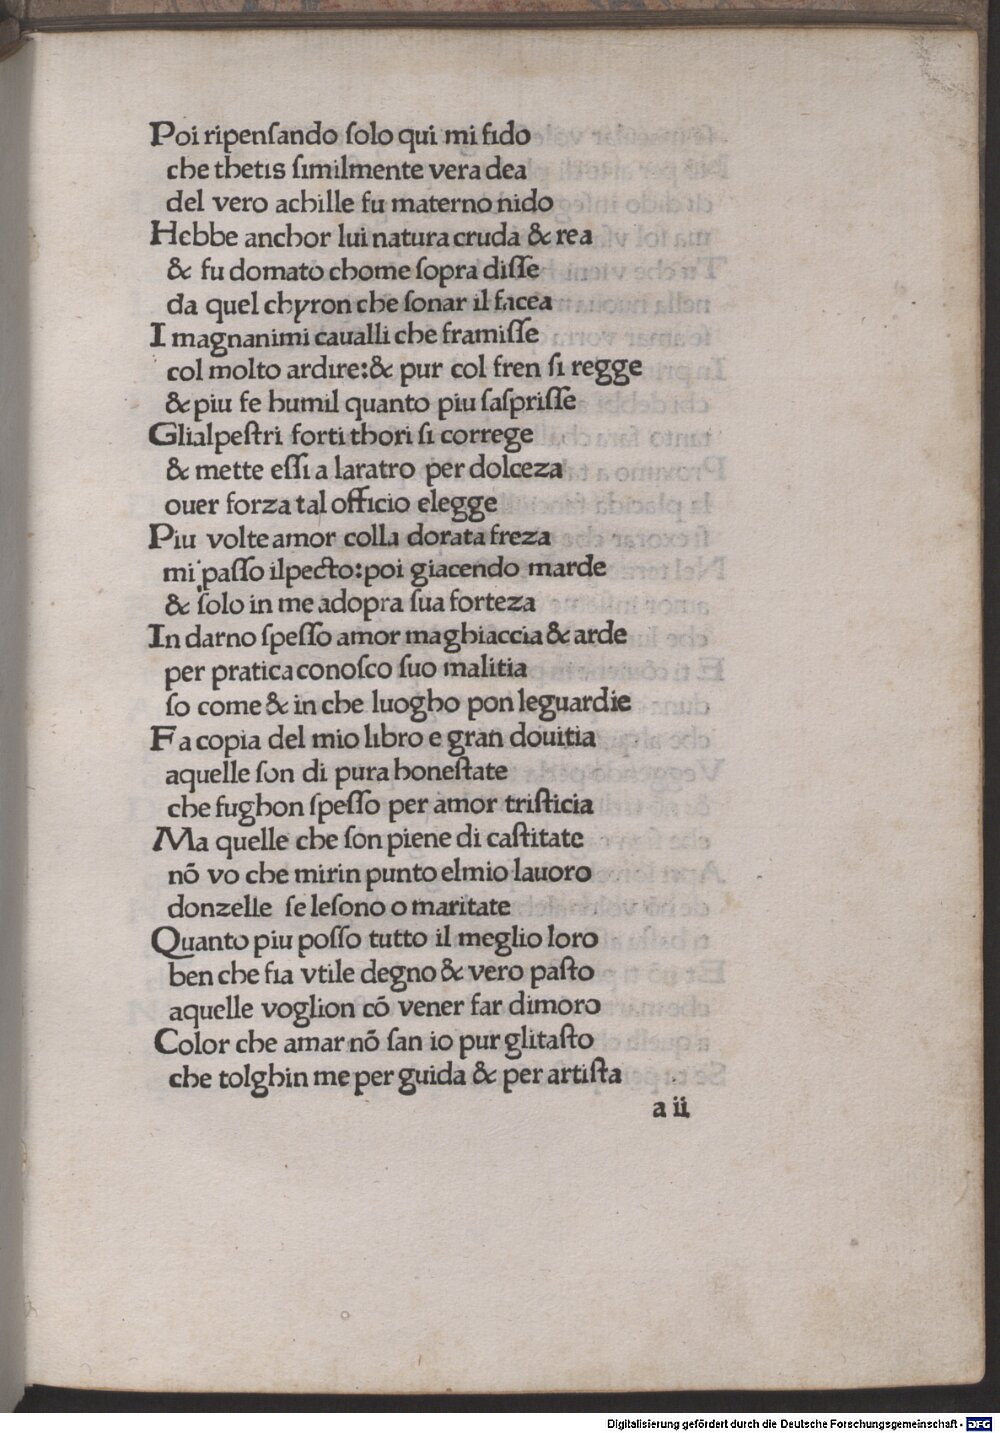 Poi ripenſando ſolo qui mi fido
che thetis ſimilmente vera dea
del vero achille fu materno nido
Hebbe anchor lui natura cruda & rea
& fu domato chome ſopra diſſe
da quel chyron che ſonar il facea
I magnanimi caualli che framiſſe
col molto ardire:& pur col fren ſi regge
& piu fe humil quanto piu ſaſpriſſe
Glialpeſtri forti thori ſi correge
& mette eſſi a laratro per dolceza
ouer forza tal officio elegge
Piu volte amor colla dorata freza
mi paſſo ilpecto:poi giacendo marde
& ſolo in me adopra ſua forteza
In darno ſpeſſo amor maghiaccia & arde
per pratica conoſco ſuo malitia
ſo come & in che luogho pon leguardie
Fa copia del mio libro e gran douitia
aquelle ſon di pura honeſtate
che fughon ſpeſſo per amor triſticia
Ma quelle che ſon piene di caſtitate
nō vo che mirin punto elmio lauoro
donzelle ſe leſono o maritate
Quanto piu poſſo tutto il meglio loro
ben che ſia vtile degno & vero paſto
aquelle voglion cō vener far dimoro
Color che amar nō ſan io pur glitaſto
che tolghin me per guida & per artiſta
a ii
Digitalisierung gefördert durch die Deutsche Forschungsgemeinschaft - DFG